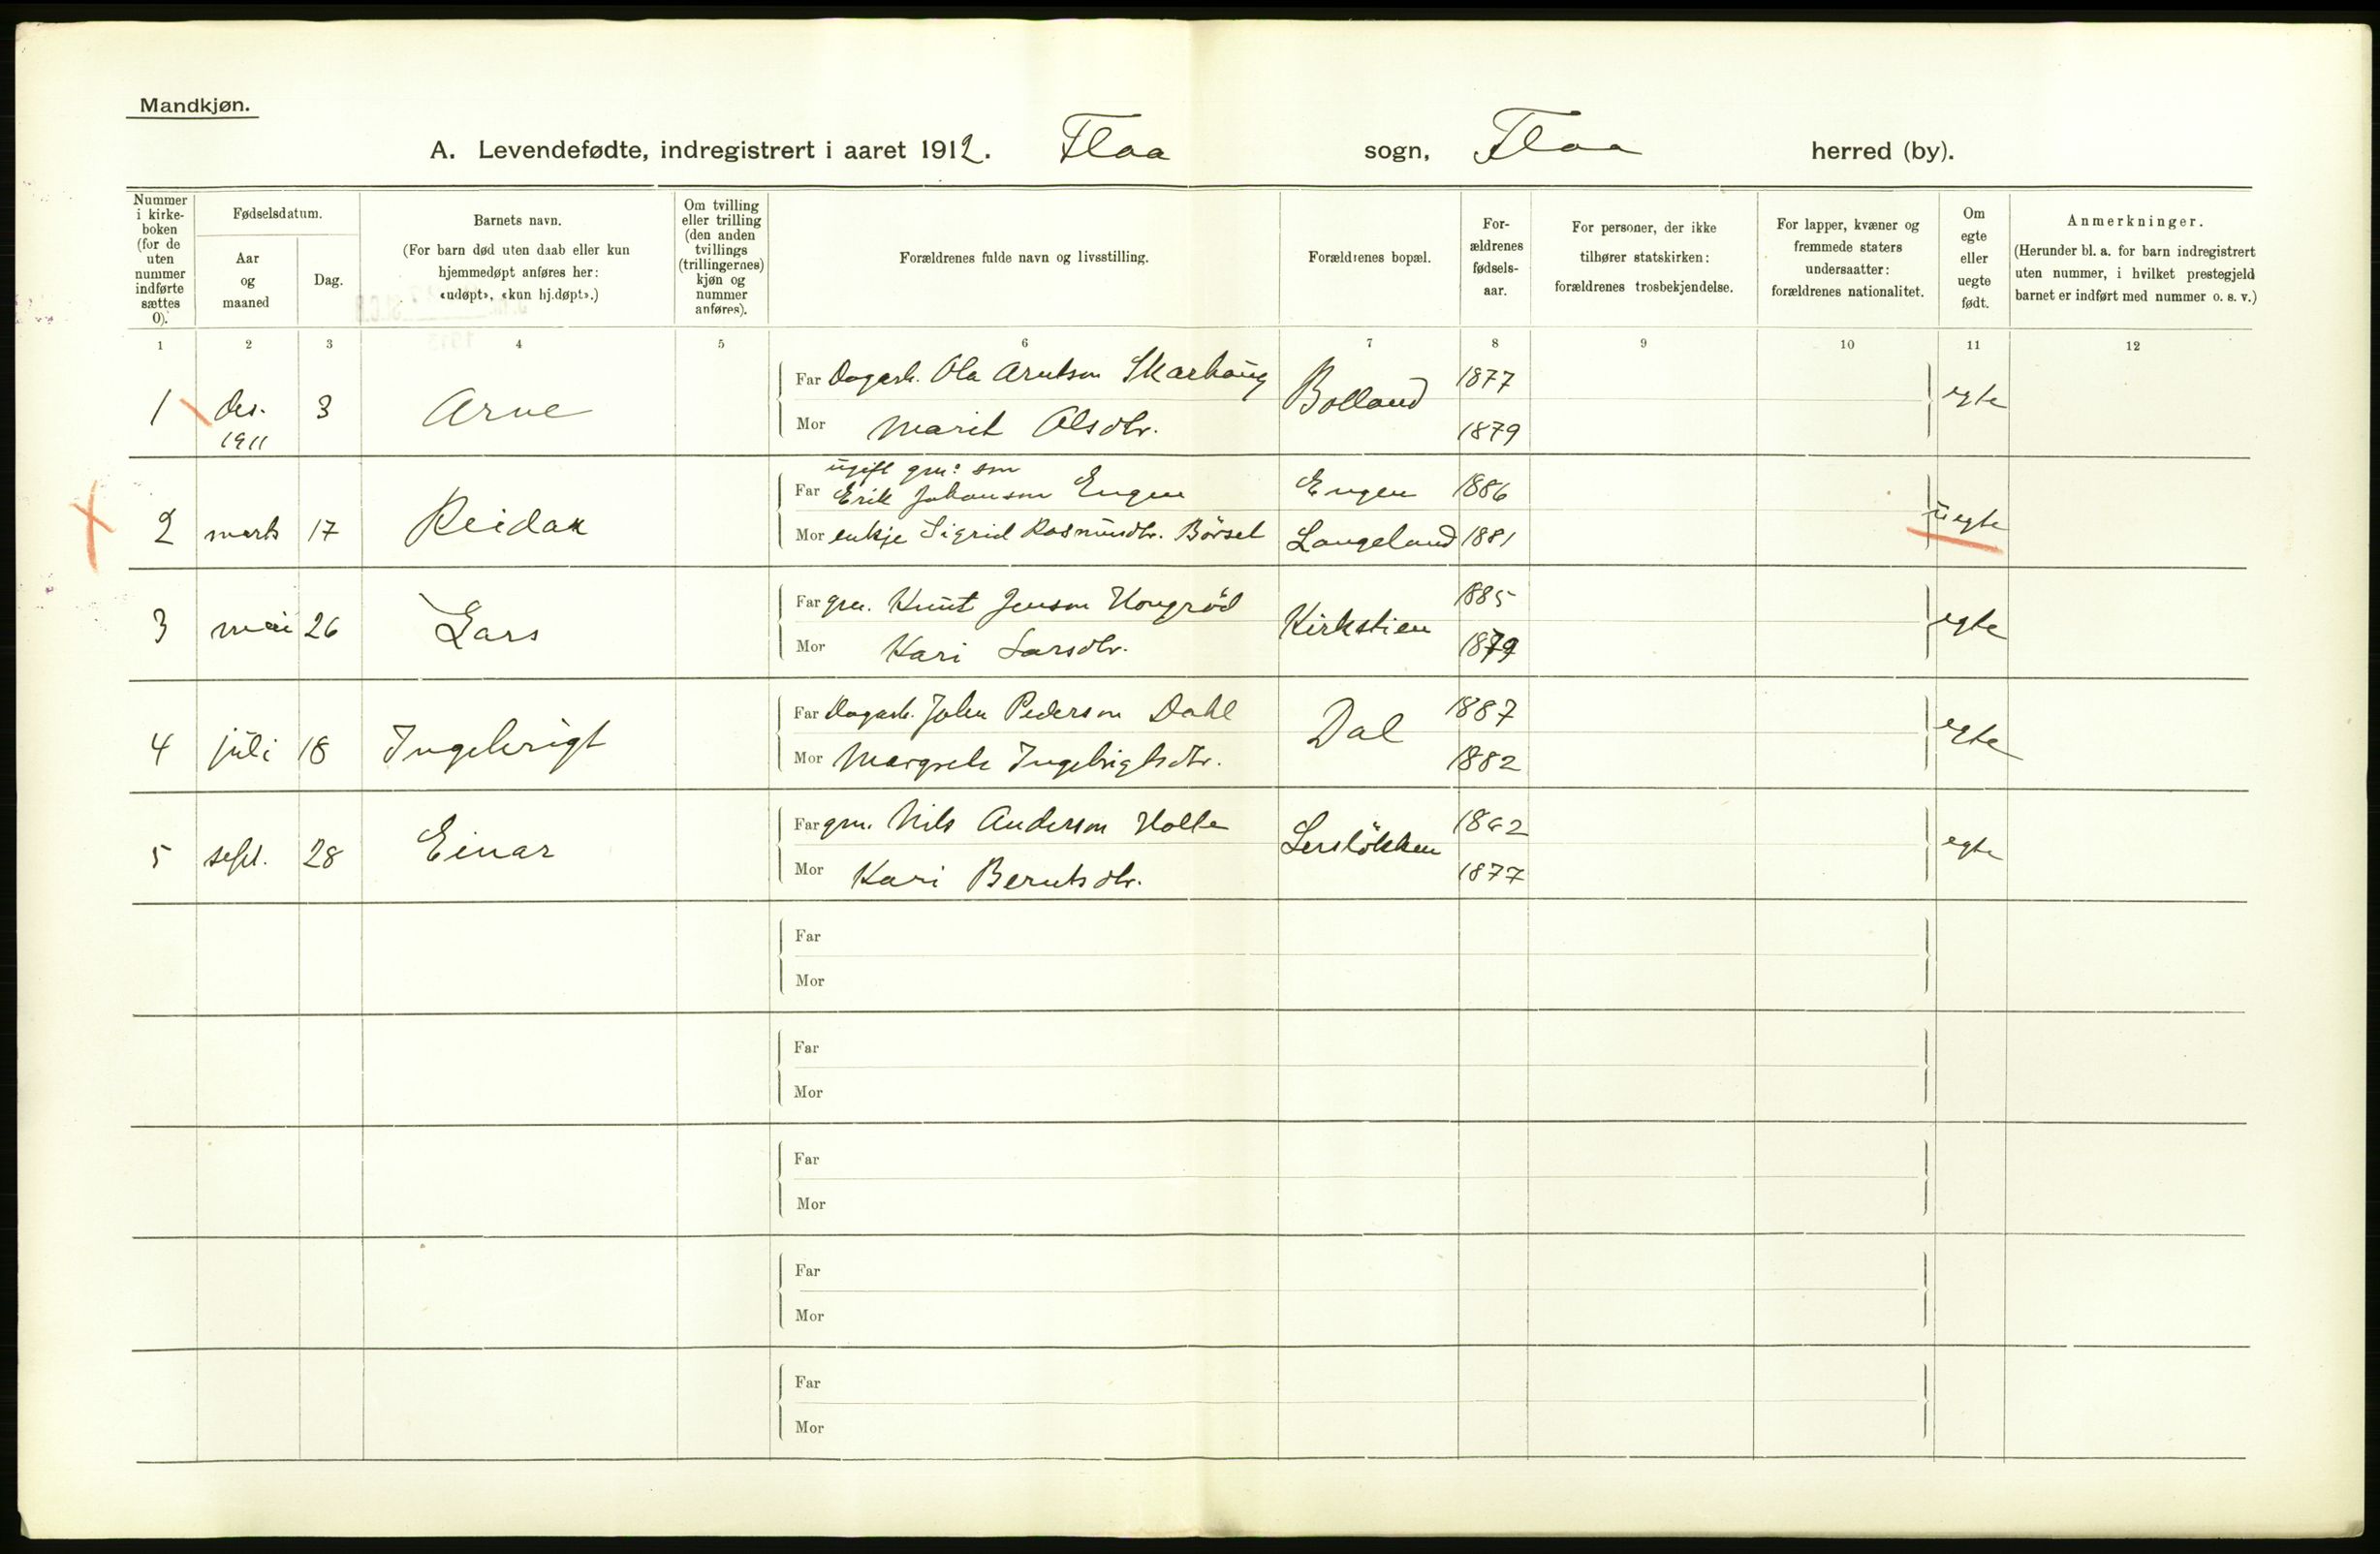 Mandkjøn.
A. Levendefødte, indregistrert i aaret 1912. Flaa sogn, Flaa herred (by).
Nummer i kirke-boken (for de uten nummer indførte sættes 0).
Fødselsdatum.
Aar og maaned
Dag.
Barnets navn.
(For barn død uten daab eller kun hjemmedøpt anføres her: «udøpt», «kun hj.døpt».)
Om tvilling eller trilling (den anden tvillings (trillingernes) kjøn og nummer anføres).
Forældrenes fulde navn og livsstilling.
Forældrenes bopæl.
For-ældrenes fødsels-aar.
For personer, der ikke tilhører statskirken: forældrenes trosbekjendelse.
For lapper, kvæner og fremmede staters undersaatter: forældrenes nationalitet.
Om egte eller uegte født.
Anmerkninger.
(Herunder bl. a. for barn indregistrert uten nummer, i hvilket prestegjeld barnet er indført med nummer o. s. v.)
1 2 3 4 5 6 7 8 9 10 11 12
1 des. 1911 3 Arne Far Dagarb. Ola Arntson Skarhaug Bolland 1877 egte
Mor Marit Olsdtr. 1879
ugift grn: søn
2 marts 17 Reidar Far Erik Johanson Engen Engen 1886 uegte
Mor enkje Sigrid Rasmusdtr. Börset Langeland 1881
3 mai 26 Lars Far grn. Knut Jenson Hongröd Kirkstien 1885 egte
Mor Kari Larsdtr. 1879
4 juli 18 Ingebrigt Far Dagarb. John Pederson Dahl Dal 1887 egte
Mor Margrete Ingebrigtsdtr. 1882
5 sept. 28 Einar Far grn. Nils Anderson Holte Lerslökken 1862 egte
Mor Kari Berntsdtr. 1877
Far
Mor
Far
Mor
Far
Mor
Far
Mor
Far
Mor